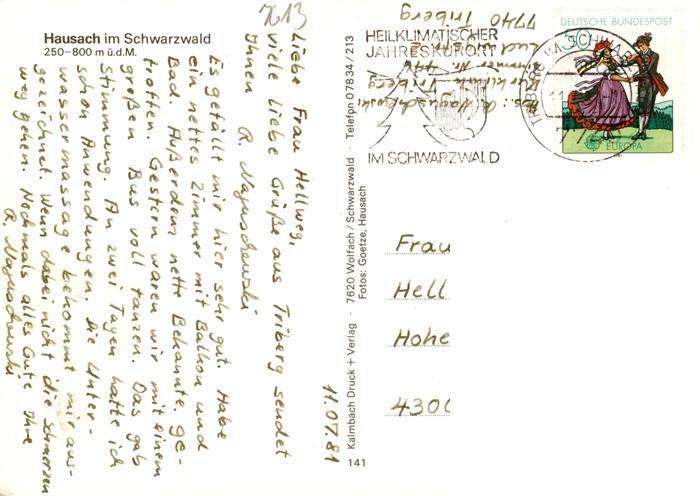 7613
Hausach im Schwarzwald
250-800 m ü.d.M.
Liebe Frau Hellweg,
viele liebe Grüße aus Triberg sendet
Ihnen R. Majuschewski
Es gefällt mir hier sehr gut. Habe
ein nettes Zimmer mit Balkon und
Bad. Außerdem nette Bekannte. ge-
troffen. Gestern waren wir mit einem
großen Bus voll tanzen. Das gab
Stimmung. An zwei Tagen hatte ich
schon Anwendungen. Die Unter-
wassermassage bekommt mir aus-
gezeichnet. Wenn dabei nicht die Schmerzen
weg gehen. Nochmals alles Gute Ihre
R. Majuschewski
11.07.81
Kalmbach Druck + Verlag · 7620 Wolfach/Schwarzwald · Telefon 07834/213
Fotos: Goetze, Hausach
141
Abs: R. Majuschewski
Kurklinik Triberg
Zimmer Nr.
7740 Triberg
HEILKLIMATISCHER
JAHRESKURORT
IM SCHWARZWALD
DEUTSCHE BUNDESPOST
50
EUROPA
TRIBERG IM SCHWARZW
Frau
Hell
Hohe
4300